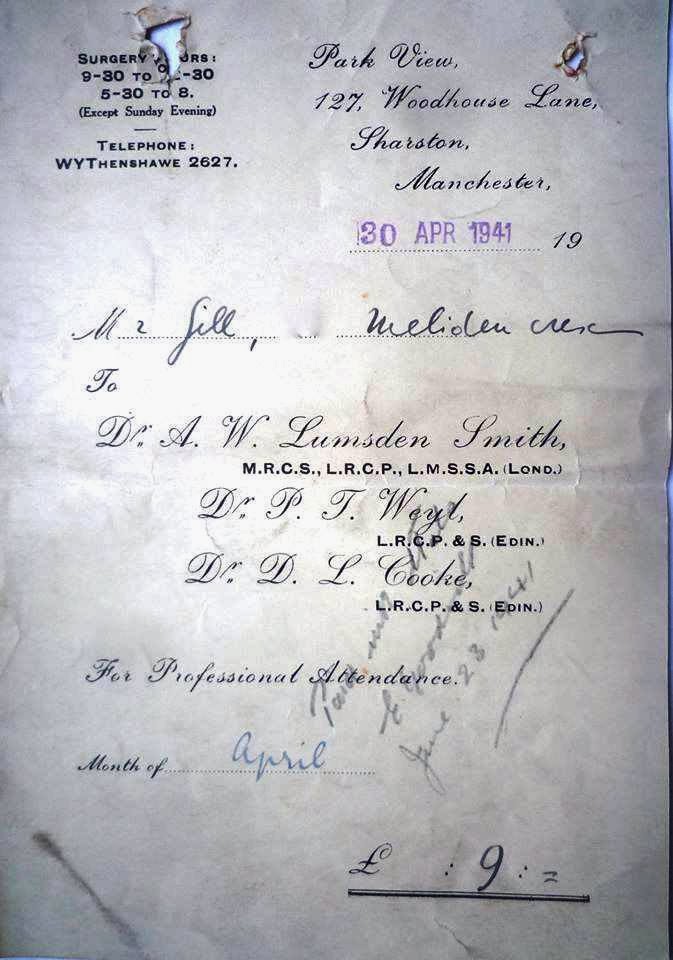 SURGERY HOURS:
9-30 TO -30
5-30 TO 8.
(Except Sunday Evening)
TELEPHONE:
WYTHENSHAWE 2627.
Park View,
127, Woodhouse Lane,
Sharston,
Manchester,
30 APR 1941 19
Mr Gill, Meliden cres
To
Dr. A. W. Lumsden Smith,
M.R.C.S., L.R.C.P., L.M.S.S.A. (LOND.)
Dr. P. T. Weyl,
L.R.C.P. & S. (EDIN.)
Dr. D. L. Cooke,
L.R.C.P. & S. (EDIN.)
For Professional Attendance.
Paid
E
June 23 1941
Month of April
£ : 9 : =